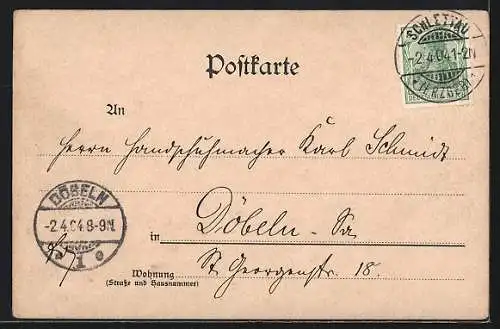 SCHLETTAU
-2.4.04.1-2N
* (ERZGEB) *
Postkarte
An
Herrn Handschuhmacher Karl Schmidt
DÖBELN
-2.4.04 8-9N.
* 1 *
in Döbeln - Sa
St. Georgenstr. 18.
Wohnung
(Straße und Hausnummer)